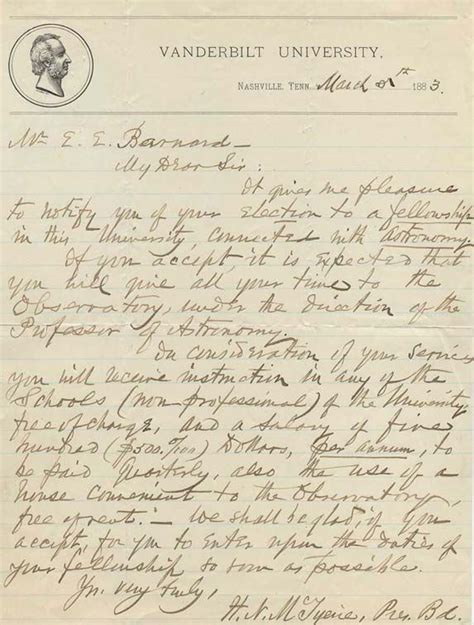 VANDERBILT UNIVERSITY.
NASHVILLE, TENN. March 1883.
Mr E. E. Barnard—
My Dear Sir:
It gives me pleasure
to notify you of your election to a fellowship
in this University, connected with Astronomy.
If you accept, it is expected that
you will give all your time to the
Observatory, under the direction of the
Professor of Astronomy.
In consideration of your services
you will receive instruction in any of the
Schools (non professional) of the University
free of charge, and a salary of five
hundred ($500.00/100) Dollars, per annum, to
be paid quarterly, also the use of a
house convenient to the Observatory,
free of rent.— We shall be glad, if you
accept, for you to enter upon the duties of
your fellowship so soon as possible.
Yrs. very truly,
H. N. McTyeire, Pres. Bd.